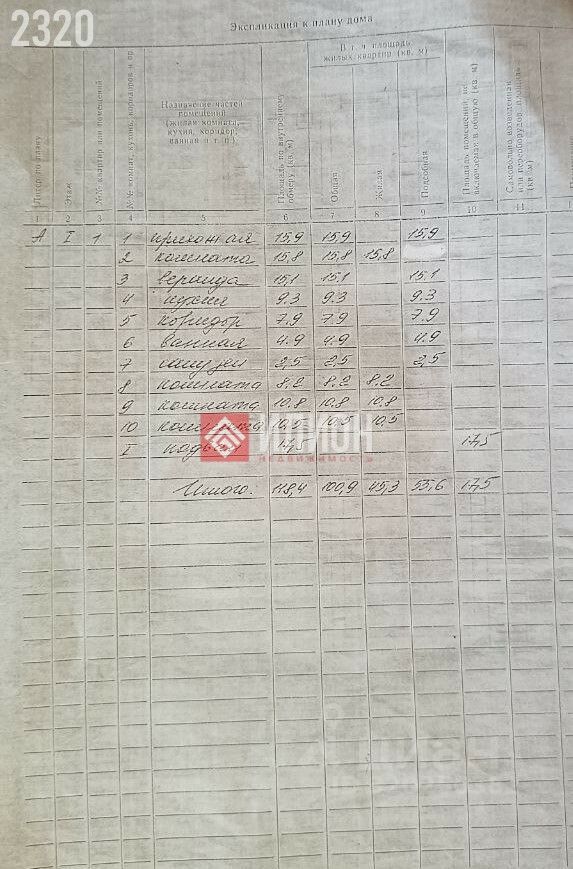 2320
Экспликация к плану дома
Литер по плану
Этаж
№№ квартир или помещений
№№ комнат, кухонь, коридоров и пр
Назначение частей помещений (жилая комната, кухня, коридор, ванная и т. п.)
Площадь по внутреннему обмеру (кв. м)
В т. ч площадь жилых квартир (кв. м)
Общая
Жилая
Подсобная
Площадь помещений, не включаемая в общую (кв. м)
Самовольно возведенная или переоборудов. площадь (кв. м)
1 2 3 4 5 6 7 8 9 10 11
А I 1 1 прихожая 15,9 15,9 15,9
2 комната 15,8 15,8 15,8
3 веранда 15,1 15,1 15,1
4 кухня 9.3 9.3 9.3
5 коридор 7.9 7.9 7.9
6 ванная 4.9 4.9 4.9
7 санузел 2,5 2,5 2,5
8 комната 8.2 8.2 8.2
9 комната 10.8 10.8 10.8
10 комната 10,5 10,5 10,5
I подвал 17,5 17,5
ИЛИОН
недвижимость
Итого: 118,4 100,9 45,3 55,6 17,5